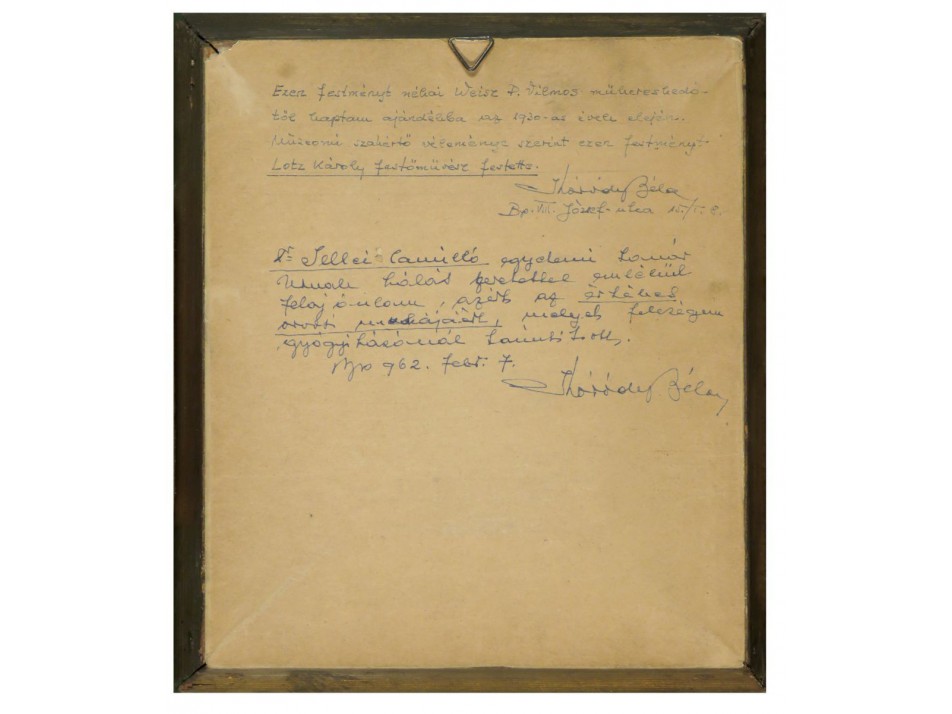 Ezen festményt néhai Weisz P. Vilmos műkereskedő-
től kaptam ajándékba az 1930-as évek elején.
Múzeumi szakértő véleménye szerint ezen festményt
Lotz Károly festőművész festette.
Bp. VIII. József-utca
Dr Sellei Camilló egyetemi tanár
Urnak hálás szeretettel emlékül
felajánlom, azért az értékes
orvosi munkájáért, melyet feleségem
gyógyitásánál tanusitott.
962. febr. 7.
Béla